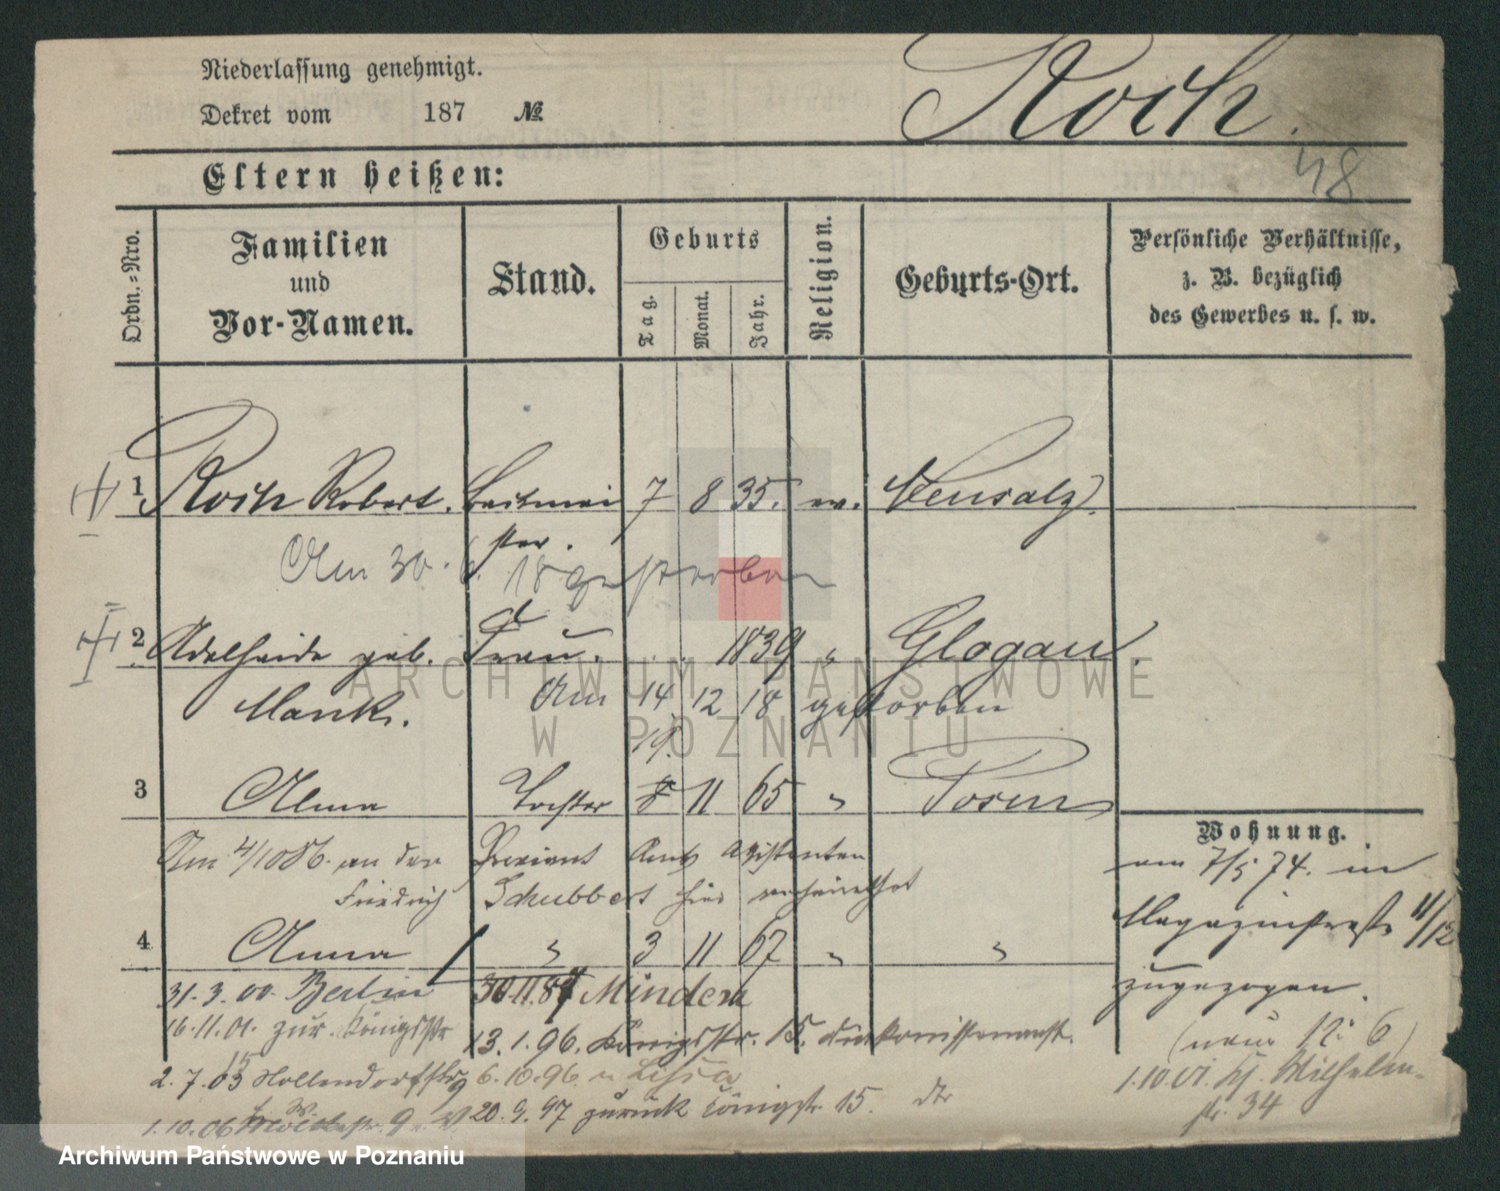 Niederlassung genehmigt.
Dekret vom 187 №
Koch.
48
Eltern heißen:
Ordn.-Nro.
Familien
und
Vor-Namen.
Stand.
Geburts
Tag.
Monat.
Jahr.
Religion.
Geburts-Ort.
Persönliche Verhältnisse,
z. B. bezüglich
des Gewerbes u. s. w.
1 Koch Robert. 7 8 35. ev. Neusalz.
Am 30. 6. 18 gestorben
2 Adelheide geb. Frau. 1839 " Glogau.
Mank. Am 14 12 18 gestorben
19.
3 Alma Tochter 8 11 65 " Posen
Wohnung.
Am 4/10 86. an den Proviant Amts Assistenten
Friedrich Schubbert hier verheirathet
am 7/5 74. in
Magazinstraße 11/12
zugezogen.
4 Anna " 3 11 67 " "
31. 3. 00. Berlin 30.11.87 Minden
16.11.01. zur. Königsstr
13.1.96. Königsstr. 15. Diakonissenanst.
(neue 12: 6)
2.7.03 Hollendorfstr 9
6.10.96. n Lissa
1.10.01 Wilhelm-
str. 34
1.10.06
20.9.97 zurück Königstr. 15.
ARCHIWUM PAŃSTWOWE
W POZNANIU
Archiwum Państwowe w Poznaniu